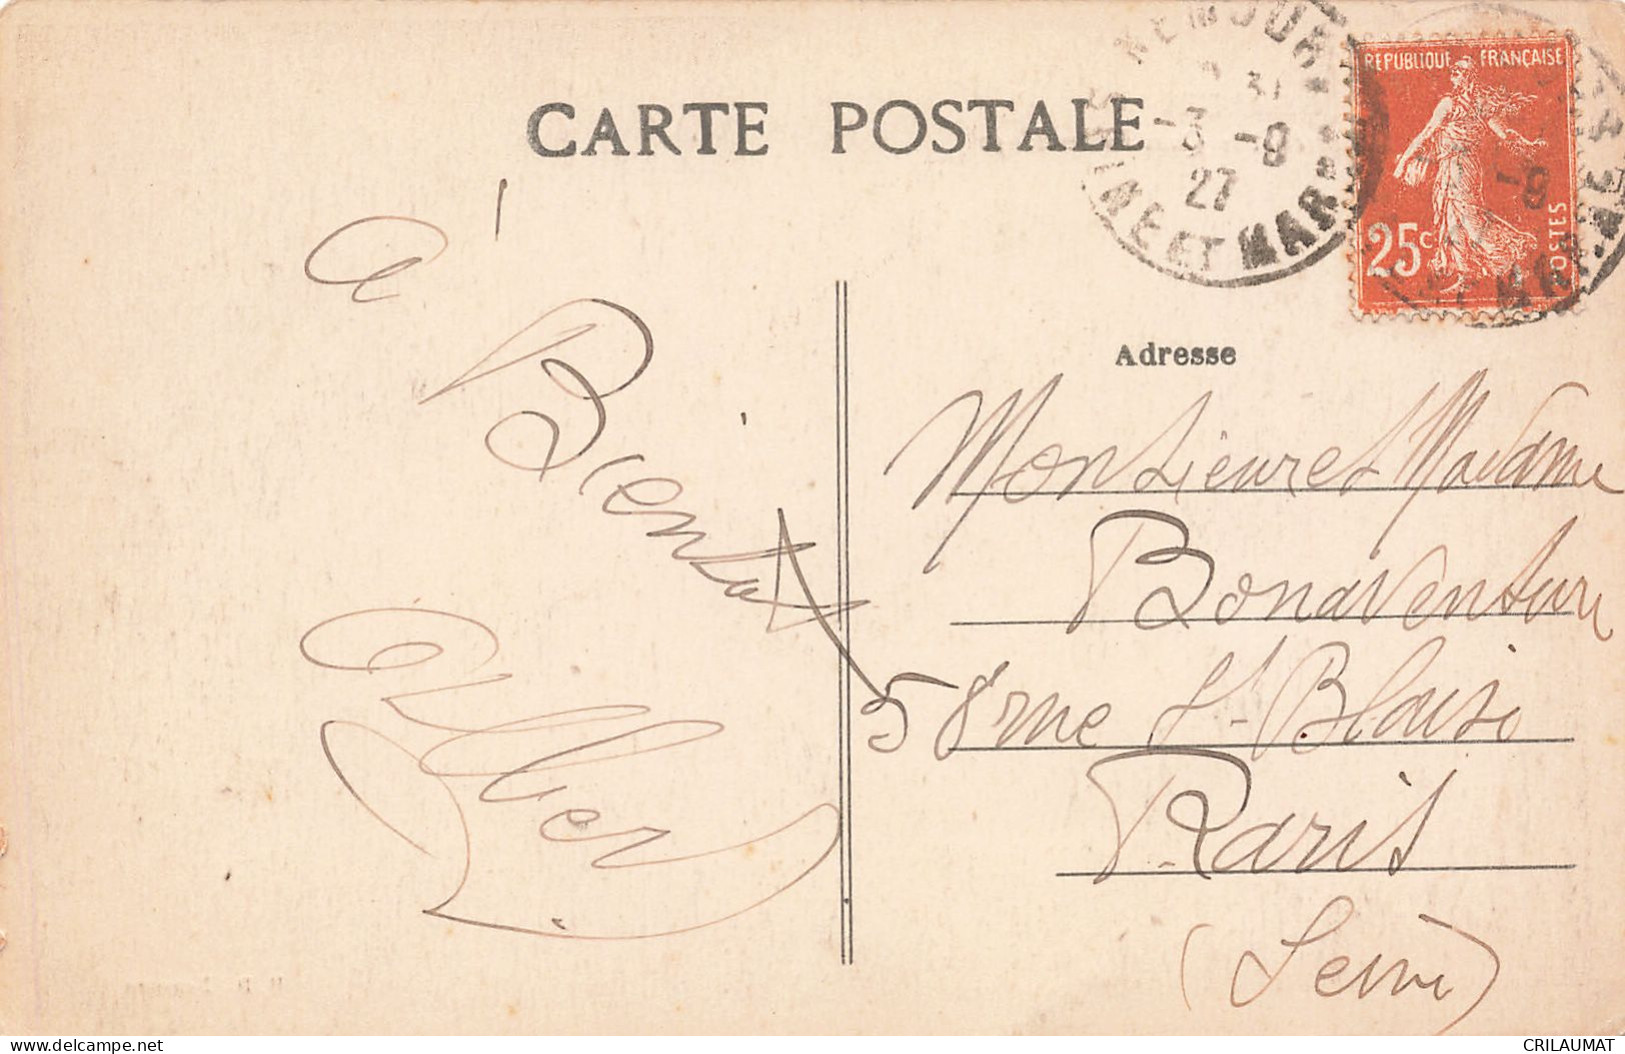 CARTE POSTALE
NEMOURS
-3 -9
27
SEINE ET MARNE
REPUBLIQUE FRANÇAISE
25c
POSTES
à
Bientot
Albert
Adresse
Monsieur et Madame
Bonaventure
58 rue St-Blaise
Paris
(Seine)
delcampe.net
CRILAUMAT